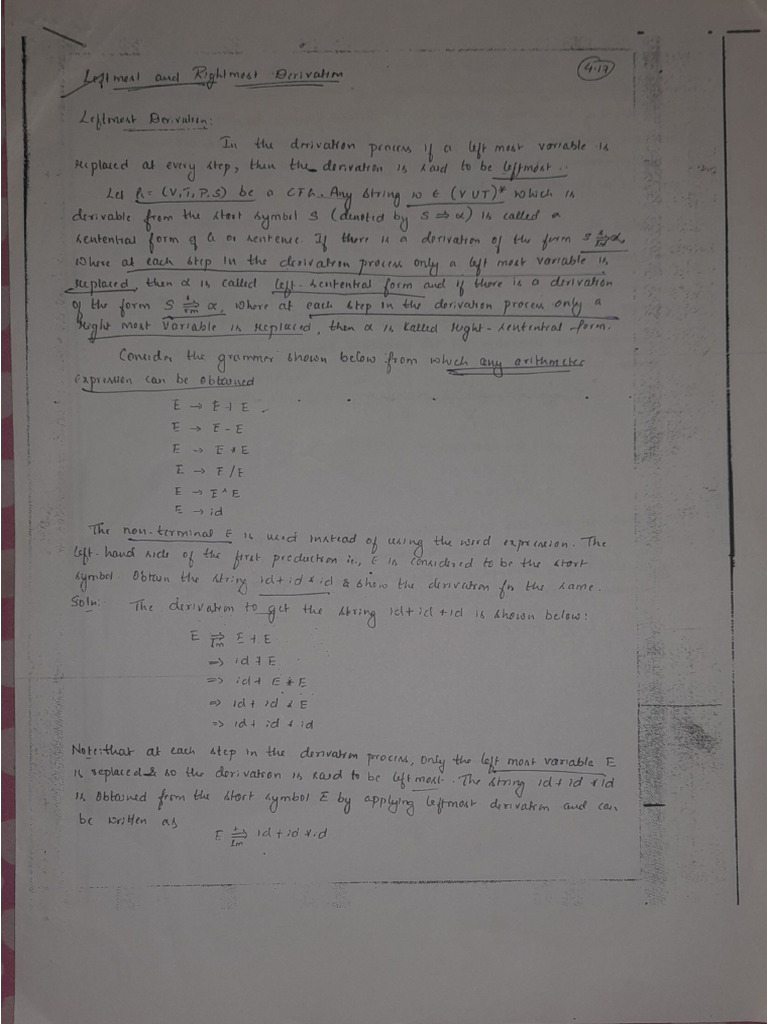 Leftmost and Rightmost Derivation
4.17
Leftmost Derivation:
In the derivation process if a left most variable is
replaced at every step, then the derivation is said to be leftmost.
Let G = (V, T, P, S) be a CFG. Any string w ∈ (V U T)* which is
derivable from the start symbol S (denoted by S ⇒ α) is called a
sentential form of G or sentence. If there is a derivation of the form S ⇒lm α,
where at each step in the derivation process only a left most variable is
replaced, then α is called left-sentential form and if there is a derivation
of the form S ⇒rm α, where at each step in the derivation process only a
right most variable is replaced, then α is kalled right-sentential form.
Consider the grammer shown below from which any arithmetic
expression can be obtained
E → E + E
E → E - E
E → E * E
E → E / E
E → E ^ E
E → id
The non-terminal E is used instead of using the word expression. The
left-hand side of the first production ie., E is considered to be the start
symbol. Obtain the string id + id * id & show the derivation for the same.
Soln: The derivation to get the string id + id + id is shown below:
E ⇒lm E + E
⇒ id + E
⇒ id + E * E
⇒ id + id * E
⇒ id + id * id
Note: that at each step in the derivation process, only the left most variable E
is replaced & so the derivation is said to be left most. The string id + id * id
is obtained from the start symbol E by applying leftmost derivation and can
be written as
E ⇒lm id + id * id